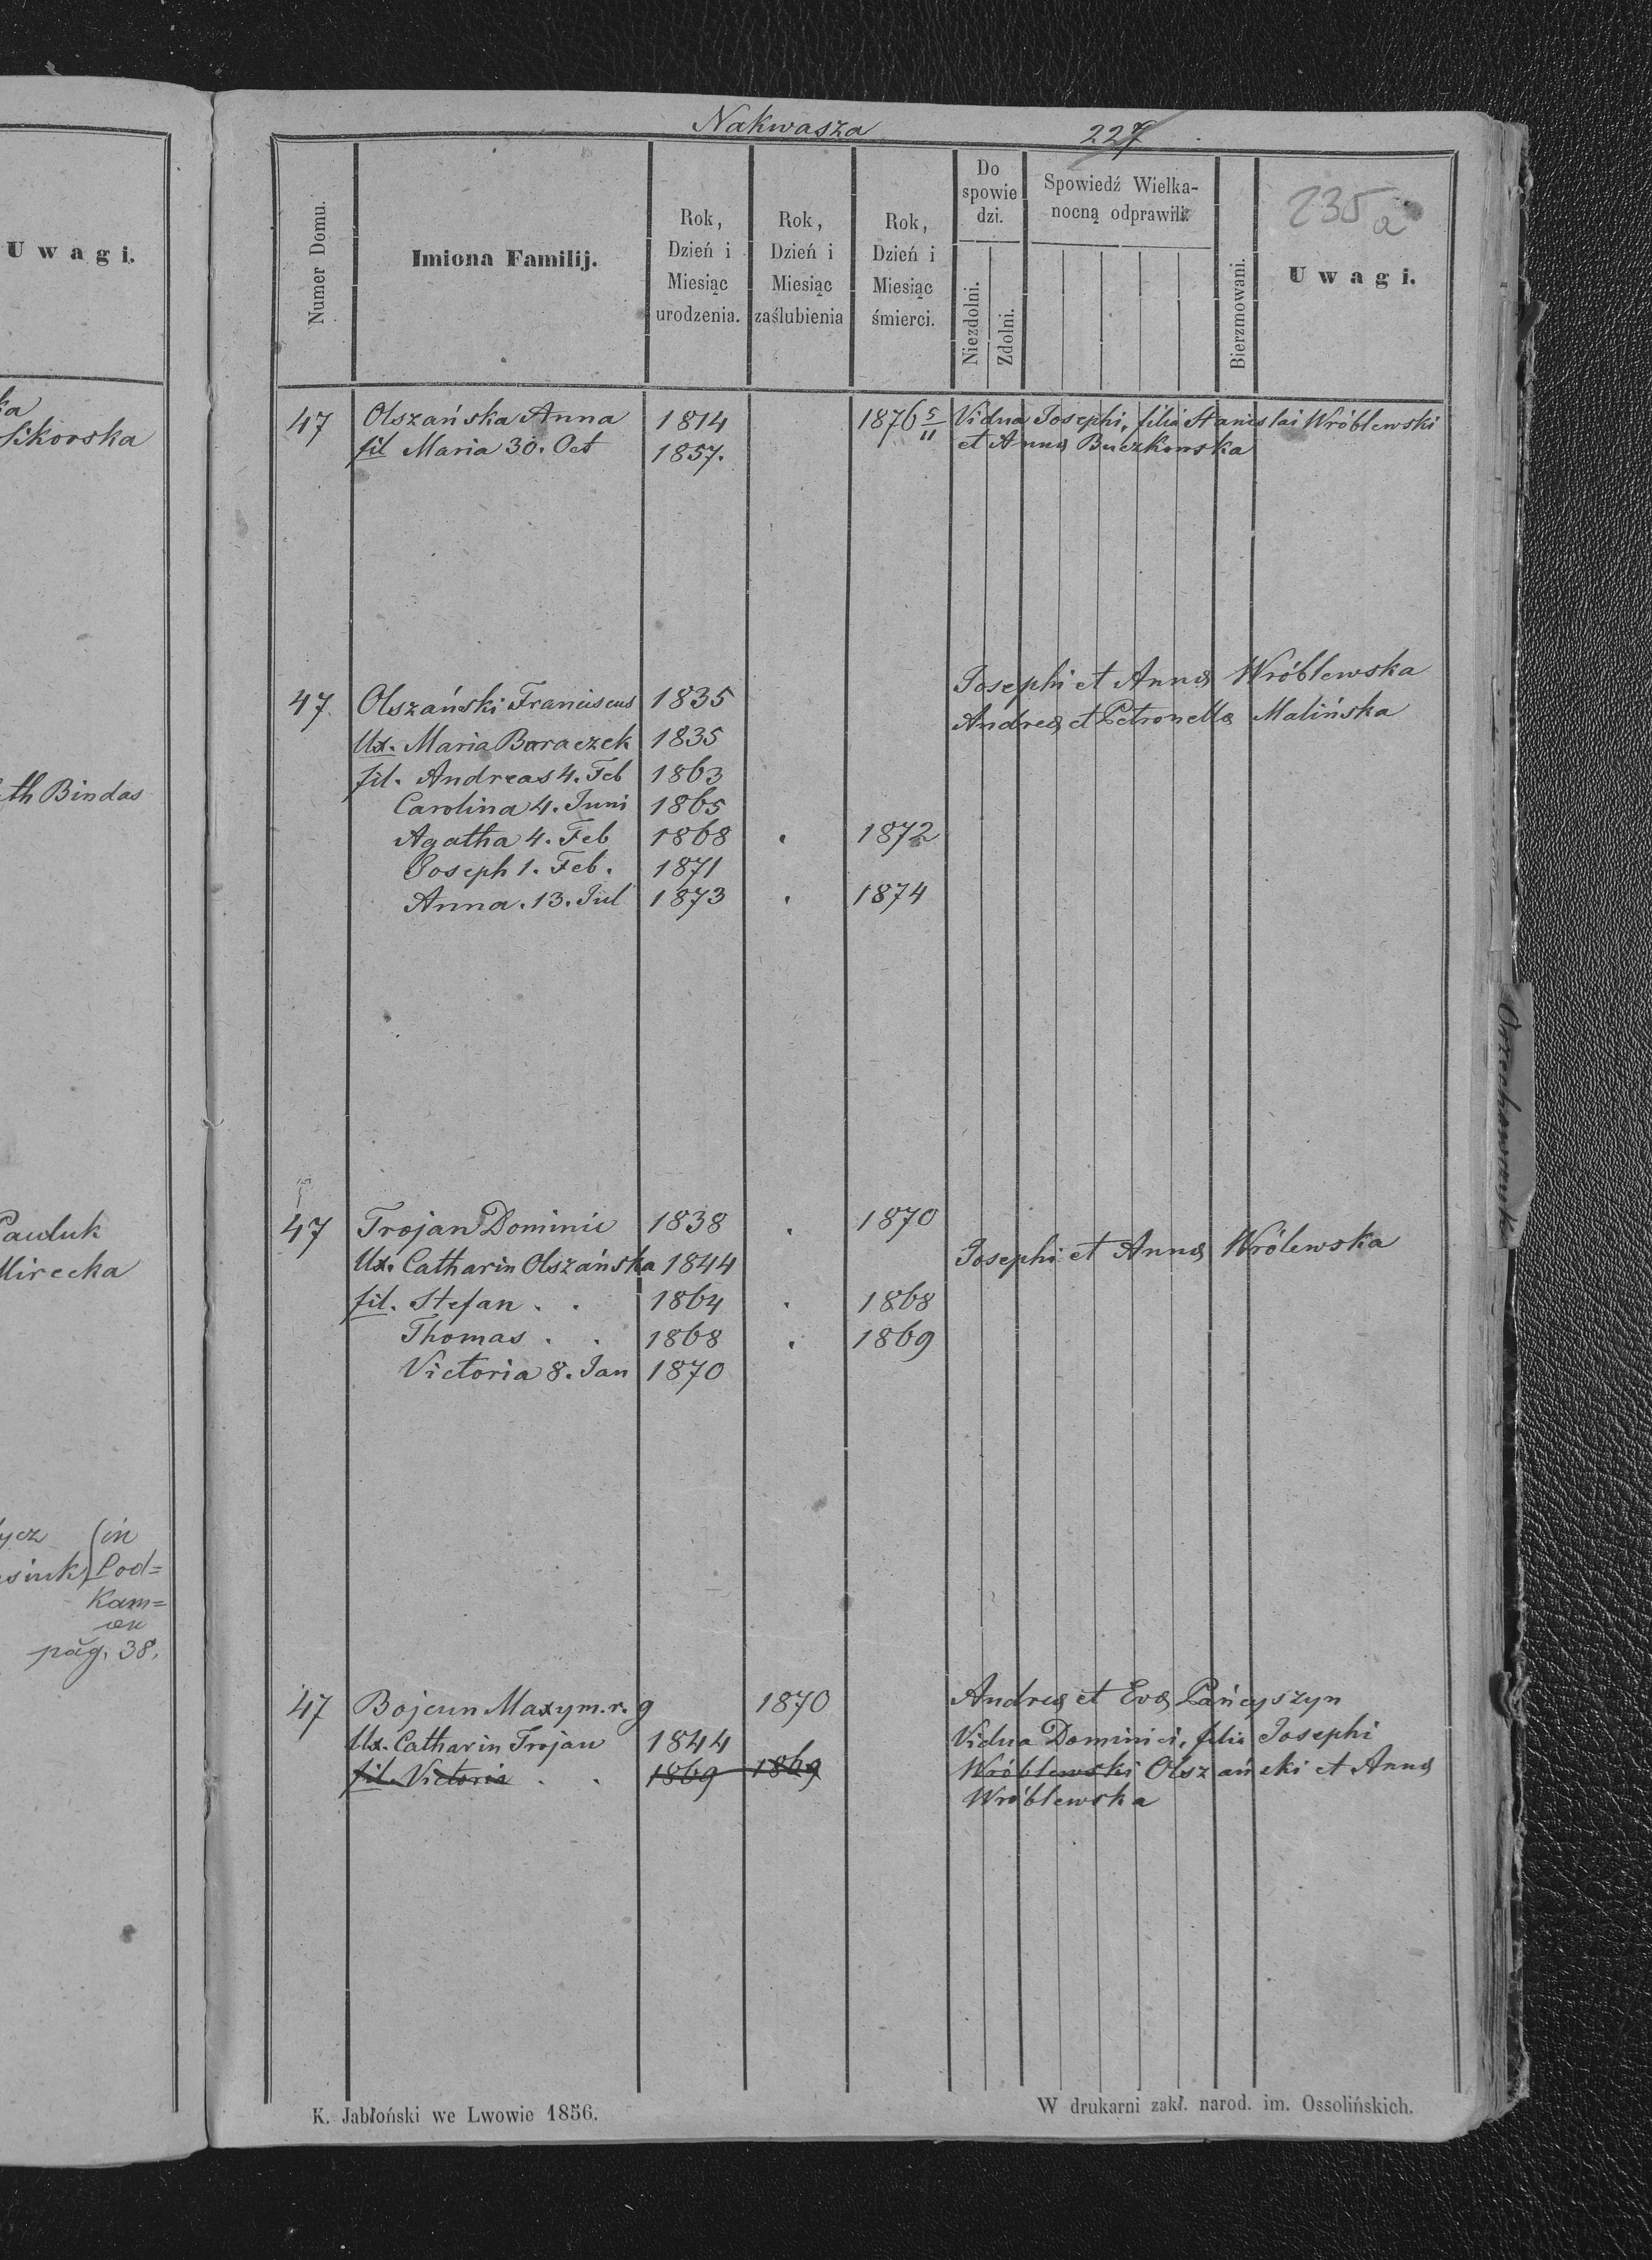 U w a g i.
Sikorska
Bindas
Pauluk
Mirecka
(in
Pod=
Kam=
en
pag. 38.
Nakwasza 227
235 a
Numer Domu.
Imiona Familij.
Rok,
Dzień i
Miesiąc
urodzenia.
Rok,
Dzień i
Miesiąc
zaślubienia
Rok,
Dzień i
Miesiąc
śmierci.
Do
spowie
dzi.
Niezdolni.
Zdolni.
Spowiedź Wielka-
nocną odprawili.
Bierzmowani.
U w a g i.
47 Olszańska Anna 1814 1876 5/11 Vidua Josephi, filia Stanislai Wróblewski
fil Maria 30. Oct 1857. et Annæ Buczkowska
47. Olszański Franciscus 1835 Josephi et Annæ Wróblewska
Ux. Maria Baraczek 1835 Andreæ et Petronellæ Malińska
fil. Andreas 4. Feb 1863
Carolina 4. Juni 1865
Agatha 4. Feb 1868 . 1872
Joseph 1. Feb. 1871
Anna. 13. Jul 1873 . 1874
47 Trojan Dominic 1838 . 1870
Ux. Catharin Olszańska 1844 Josephi et Annæ Wrólewska
fil. Stefan . . 1864 . 1868
Thomas . . 1868 . 1869
Victoria 8. Jan 1870
47 Bojcun Maxym. r. g 1870 Andreæ et Evæ Pańcyszyn
Ux. Catharin Trojan 1844 Vidua Dominici, filia Josephi
fil. Victoria . . 1869 1869 Wróblewski Olszański et Annæ
Wróblewska
K. Jabłoński we Lwowie 1856.
W drukarni zakł. narod. im. Ossolińskich.